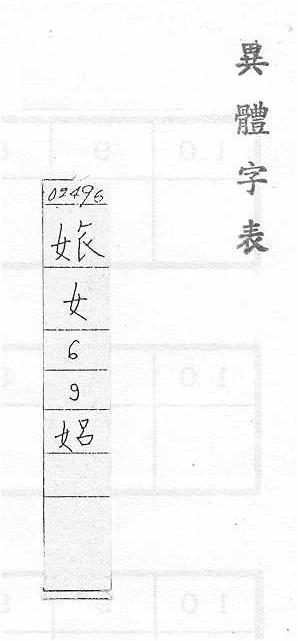 異體字表
02496
女
6
9